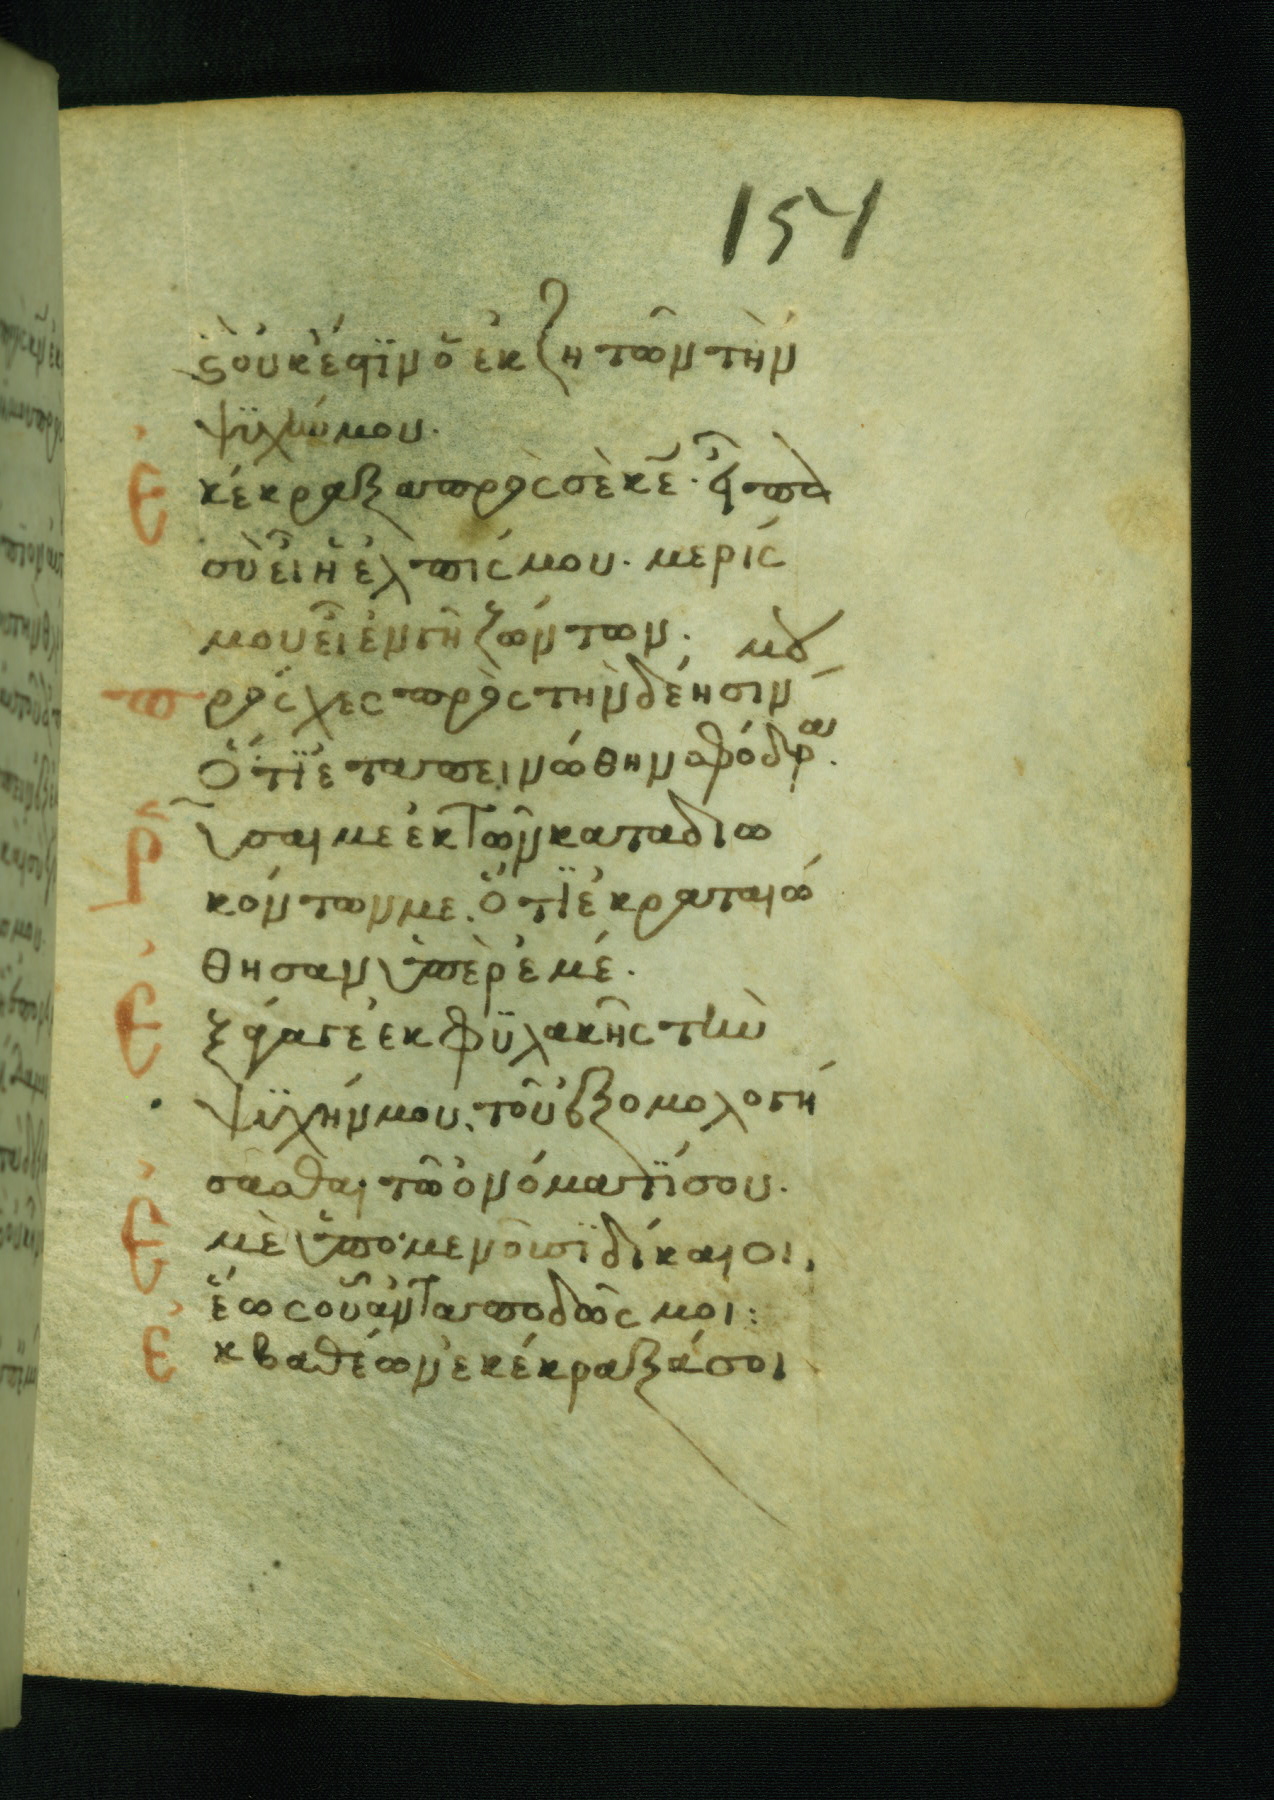 154
ϛ οὐκ ἔστιν ὁ ἐκζητῶν τὴν
ψυχήν μου.
Ἐκέκραξα πρὸς σὲ κε̄· εἶπα
σὺ εἶ ἡ ἐλπίς μου· μερίς
μου εἶ ἐν γῇ ζώντων·
Πρόσχες πρὸς τὴν δέησίν μου
ὅτι ἐταπεινώθην σφόδρα.
Ῥῦσαί με ἐκ τῶν καταδιω
κόντων με. ὅτι ἐκραταιώ
θησαν ὑπὲρ ἐμέ.
Ἐξάγαγε ἐκ φυλακῆς τὴν
ψυχήν μου, τοῦ ἐξομολογή
σασθαι τῷ ὀνόματί σου.
Ἐμὲ ὑπομενοῦσι δίκαιοι,
ἕως οὗ ἀνταποδῷς μοι:
Ἐκ βαθέων ἐκέκραξά σοι